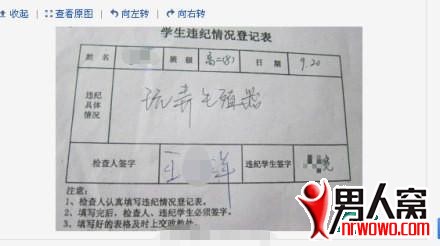 收起 查看原图 向左转 向右转
学生违纪情况登记表
姓名 班级 高二(8) 日期 9.20
违纪
具体
情况
玩弄生殖器
检查人签字 王 洋 违纪学生签字
注意：
1、检查人认真填写违纪情况登记表。
2、填写完后，检查人、违纪学生必须签字。
3、填写好的表格及时上交
男人窝
nr.wowo.com